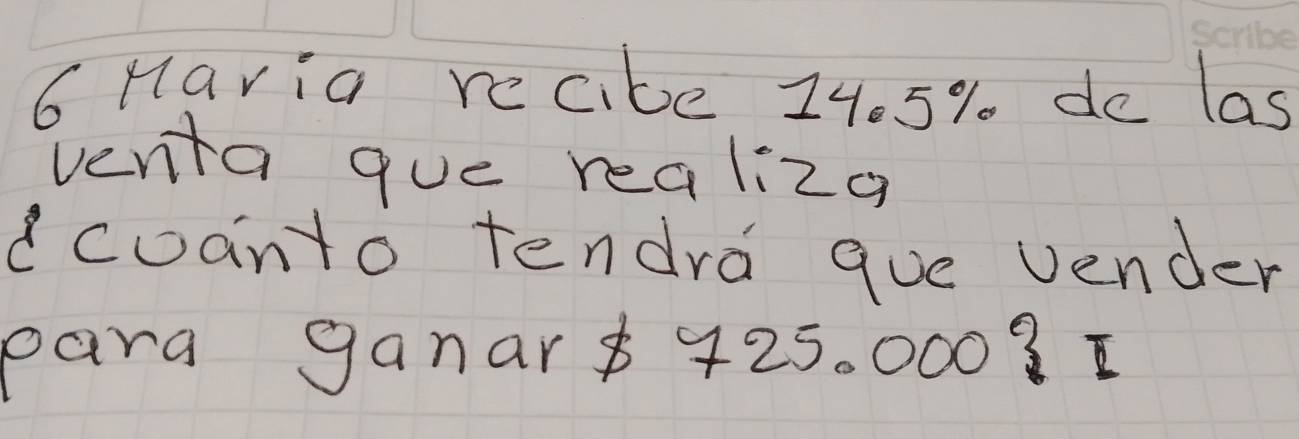 Scribe
6 Maria recibe 14.5% de las
venta que realiza
¿cuánto tendrá que vender
para ganar $ 725.000? I